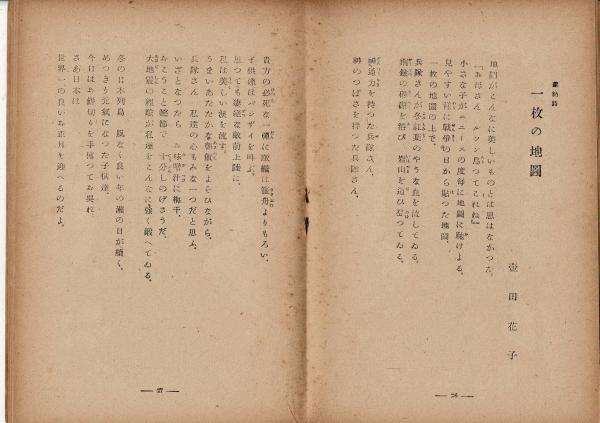 獻納詩
一枚の地圖
壺田花子
地圖がこんなに美しいものとは思はなかつた。
『お母さん ルソン島つてこれね』
小さな子がニュースの度毎に地圖に駈けよる。
見やすい樣に戰爭の日から貼つた地圖。
一枚の地圖の上で、
兵隊さんが冬紅葉のやうな血を流してゐる。
彈を浴び 岩山を這ひ登つてゐる。
神通力を持つた兵隊さん。
神のつばさを持つた兵隊さん。
— 26 —
貴方の必死な一彈に敵艦は笹舟よりもろい。
子供達はバンザイを叫ぶ。
思つても凄絶な敵前上陸に
私は美しい淚を流す。
うまいあたたかな朝飯をよそひながら。
兵隊さん 私達の心もみな一つだと思ふ。
いざとなつたら お味噌汁に梅干、
おこうこと鰹節で 十分しのげさうだ。
大地震の經驗が私達をこんなに強く鍛へてゐる。
冬の日本列島 風なく良い年の瀬の日が續く。
めつきり元氣になつた子供達、
今日はお餅切りを手傳つてお呉れ。
さあ日本は
世界一の良いお正月を迎へるのだよ。
— 27 —